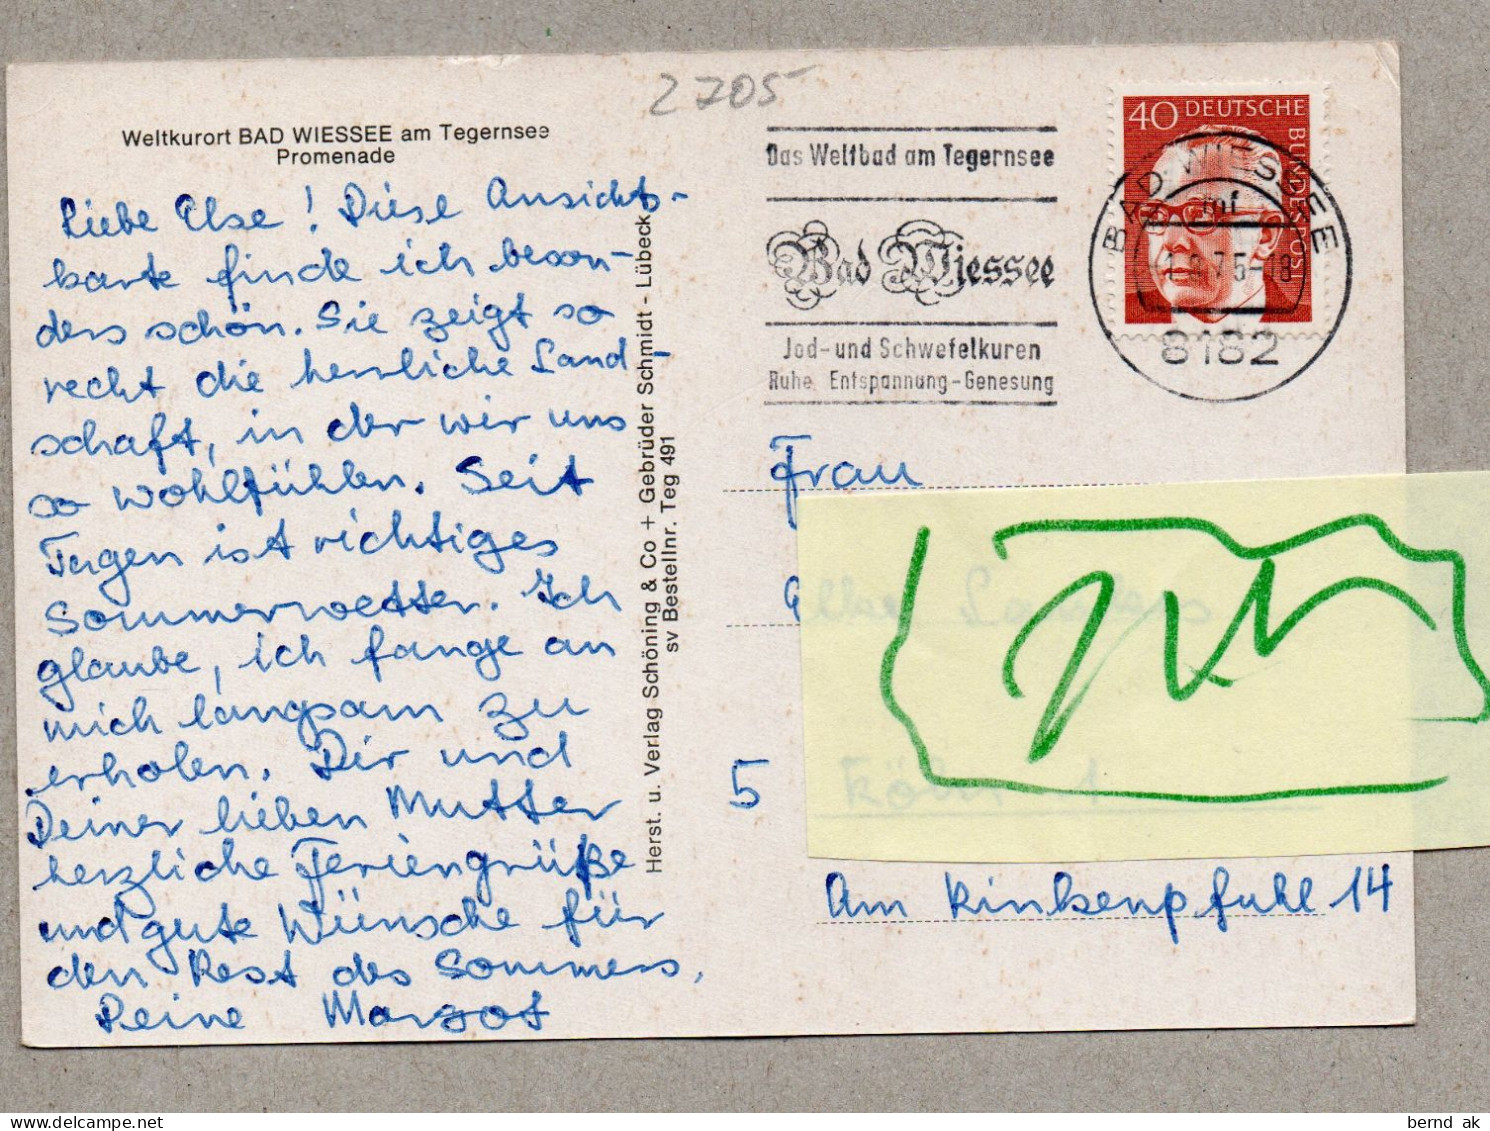 2705
Weltkurort BAD WIESSEE am Tegernsee
Promenade
Liebe Else! Diese Ansichts-
karte finde ich beson-
ders schön. Sie zeigt so
recht die herrliche Land-
schaft, in der wir uns
so wohlfühlen. Seit
Tagen ist richtiges
Sommerwetter. Ich
glaube, ich fange an
mich langsam zu
erholen. Dir und
Deiner lieben Mutter
herzliche Feriengrüße
und gute Wünsche für
den Rest des Sommers.
Deine Margot
Herst. u. Verlag Schöning & Co + Gebrüder Schmidt - Lübeck
sv Bestellnr. Teg 491
Das Weltbad am Tegernsee
Bad Wiessee
Jod- und Schwefelkuren
Ruhe Entspannung-Genesung
40 DEUTSCHE
BUNDESPOST
BAD WIESSEE
8182
Frau
5
Köln 1
Am Rinkenpfuhl 14
bernd ak